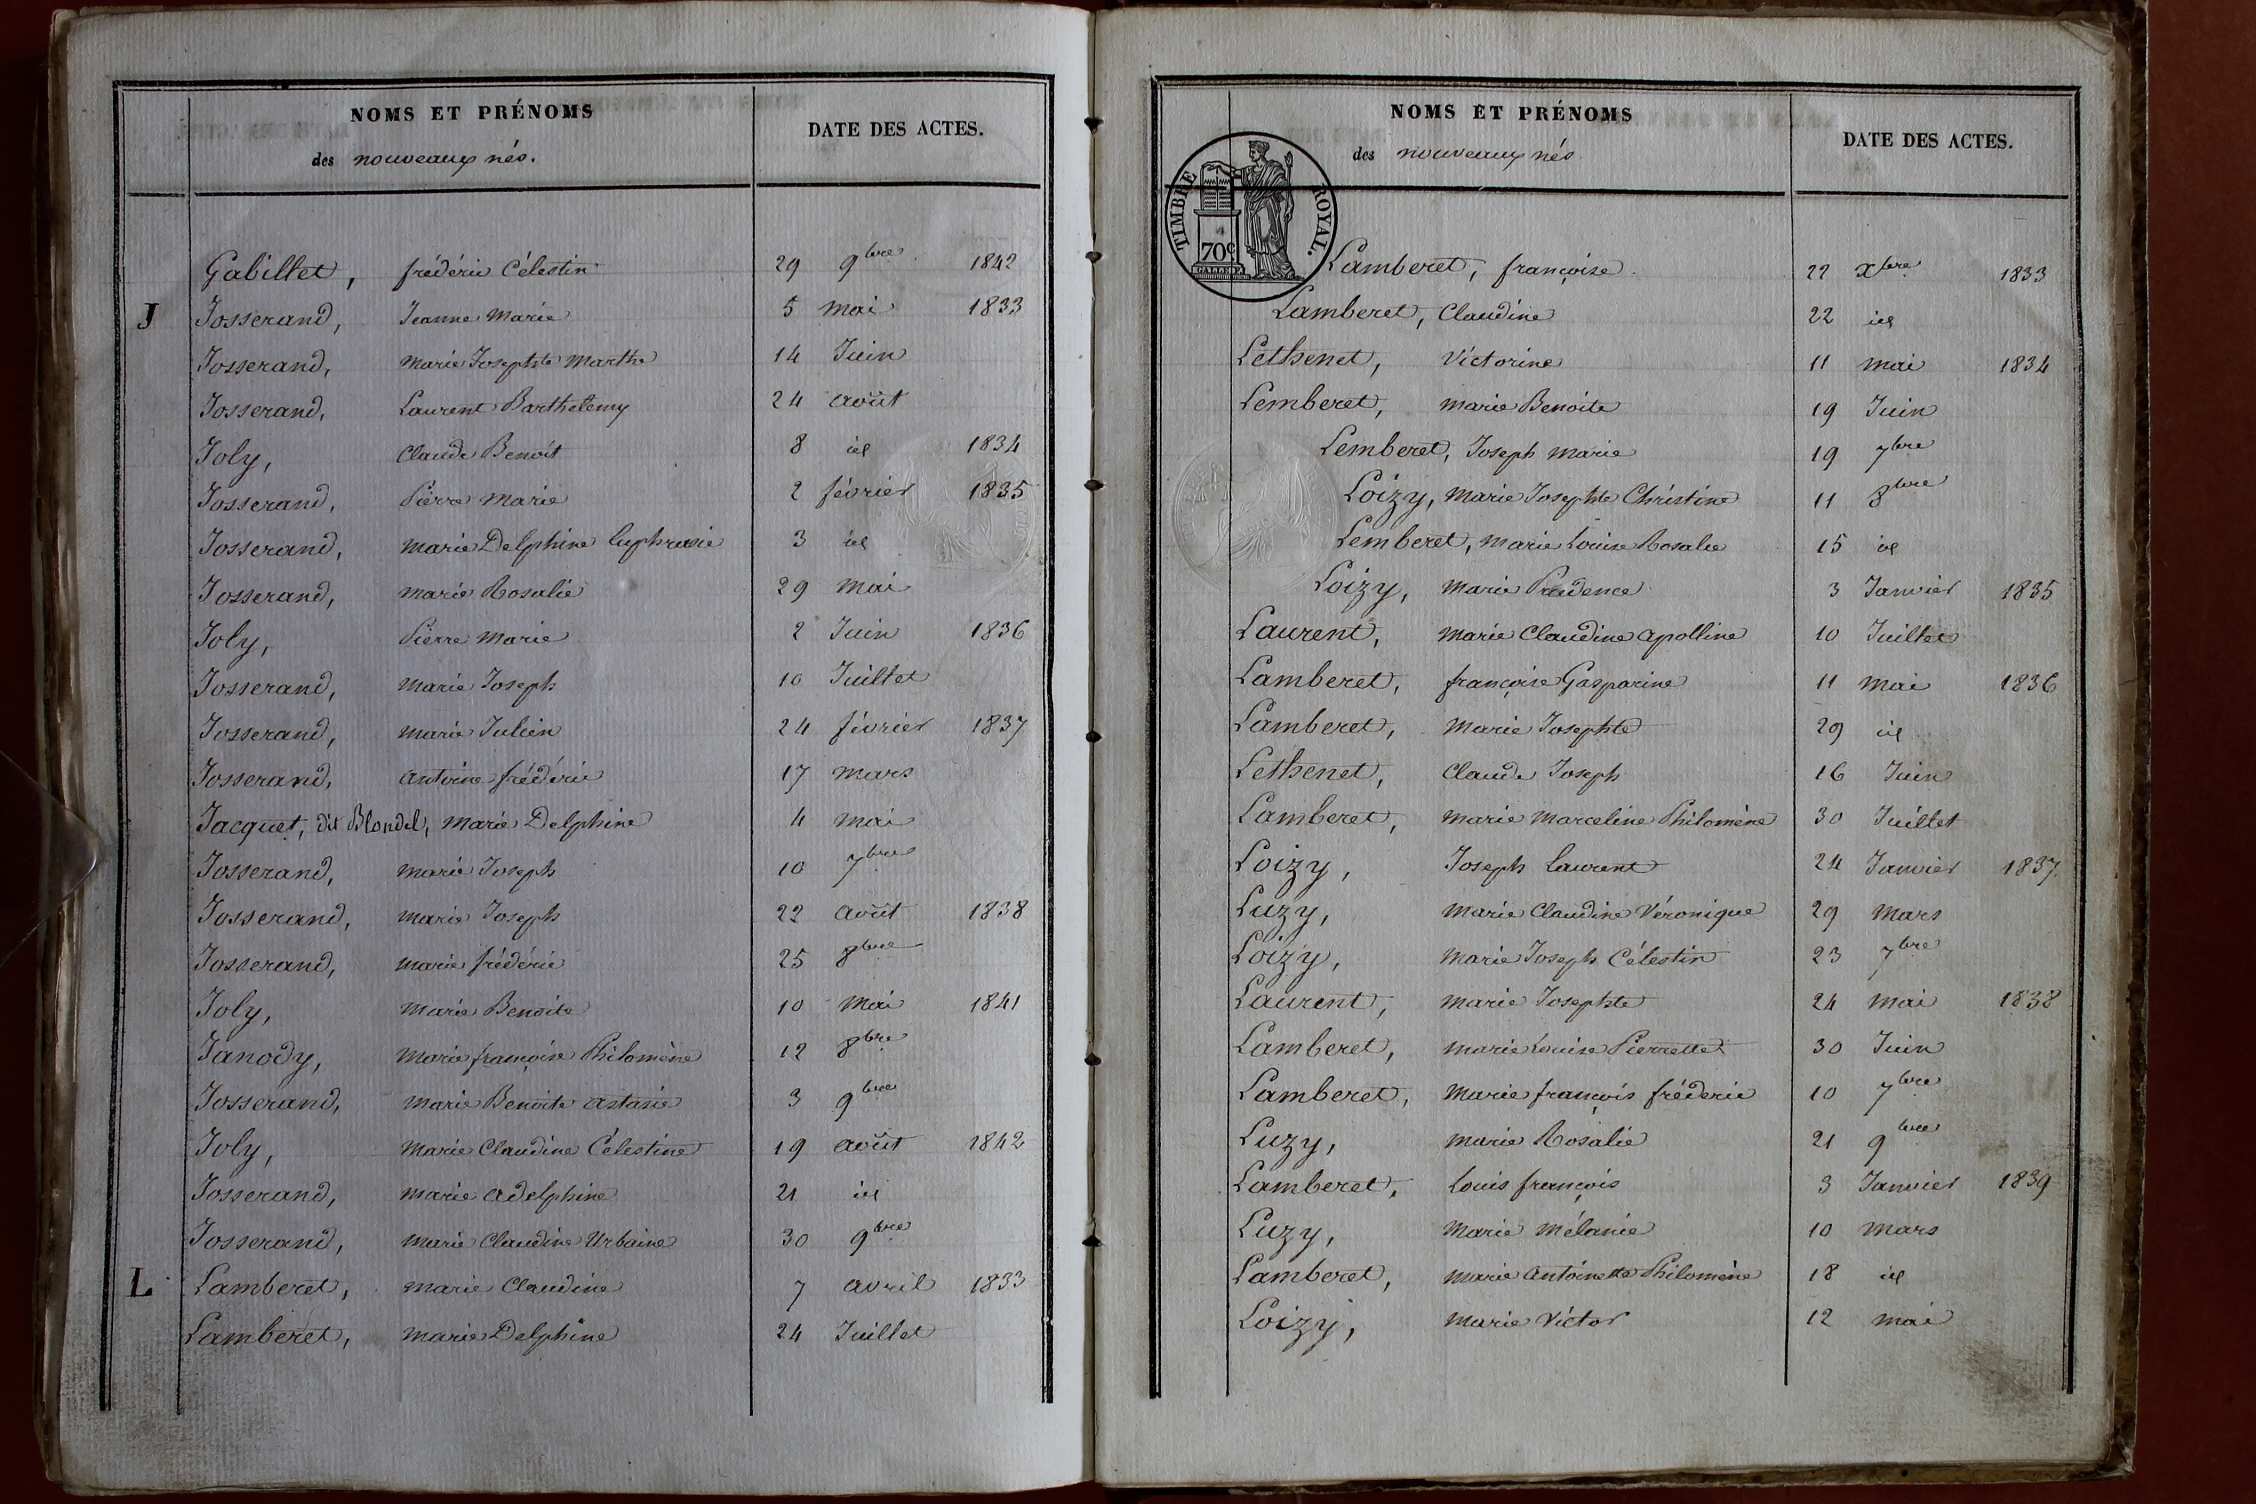 NOMS ET PRÉNOMS
des nouveaux nés.
DATE DES ACTES.
Gabillet, frédéric Célestin 29 9bre 1842
J Josserand, Jeanne Marie 5 mai 1833
Josserand, marie Josephte marthe 14 Juin
Josserand, Laurent Barthelemy 24 août
Joly, Claude Benoit 8 id 1834
Josserand, Pierre marie 2 février 1835
Josserand, marie Delphine Euphrasie 3 id
Josserand, marie Rosalie 29 mai
Joly, Pierre Marie 2 Juin 1836
Josserand, marie Joseph 10 Juillet
Josserand, marie Julien 24 février 1837
Josserand, antoine frédéric 17 mars
Jacquet, dit Blondel, marie Delphine 4 mai
Josserand, marie Joseph 10 7bre
Josserand, marie Joseph 22 août 1838
Josserand, marie frédéric 25 8bre
Joly, marie Benoite 10 mai 1841
Janody, marie françoise Philomène 12 8bre
Josserand, marie Benoite astasie 3 9bre
Joly, marie Claudine Célestine 19 août 1842
Josserand, marie adelphine 21 id
Josserand, marie Claudine Urbaine 30 9bre
L Lamberet, marie Claudine 7 avril 1833
Lamberet, marie Delphine 24 Juillet
NOMS ET PRÉNOMS
des nouveaux nés.
DATE DES ACTES.
TIMBRE ROYAL.
70c
Lamberet, françoise 22 xbre 1833
Lamberet, Claudine 22 id
Lethenet, Victorine 11 mai 1834
Lemberet, marie Benoite 19 Juin
Lemberet, Joseph marie 19 7bre
Loizy, marie Josephte Christine 11 8bre
Lemberet, marie Louise Rosalie 15 id
Loizy, marie Prudence 3 Janvier 1835
Laurent, marie Claudine apolline 10 Juillet
Lamberet, françoise Gasparine 11 mai 1836
Lamberet, marie Josephte 29 id
Lethenet, Claude Joseph 16 Juin
Lamberet, marie marceline Philomène 30 Juillet
Loizy, Joseph Laurent 24 Janvier 1837
Luzy, marie Claudine Véronique 29 mars
Loizy, marie Joseph Célestin 23 7bre
Laurent, marie Josephte 24 mai 1838
Lamberet, marie Louise Pierrette 30 Juin
Lamberet, marie françois fréderic 10 7bre
Luzy, marie Rosalie 21 9bre
Lamberet, Louis françois 3 Janvier 1839
Luzy, marie mélanie 10 mars
Lamberet, marie antoinette Philomène 18 id
Loizy, marie Victor 12 mai